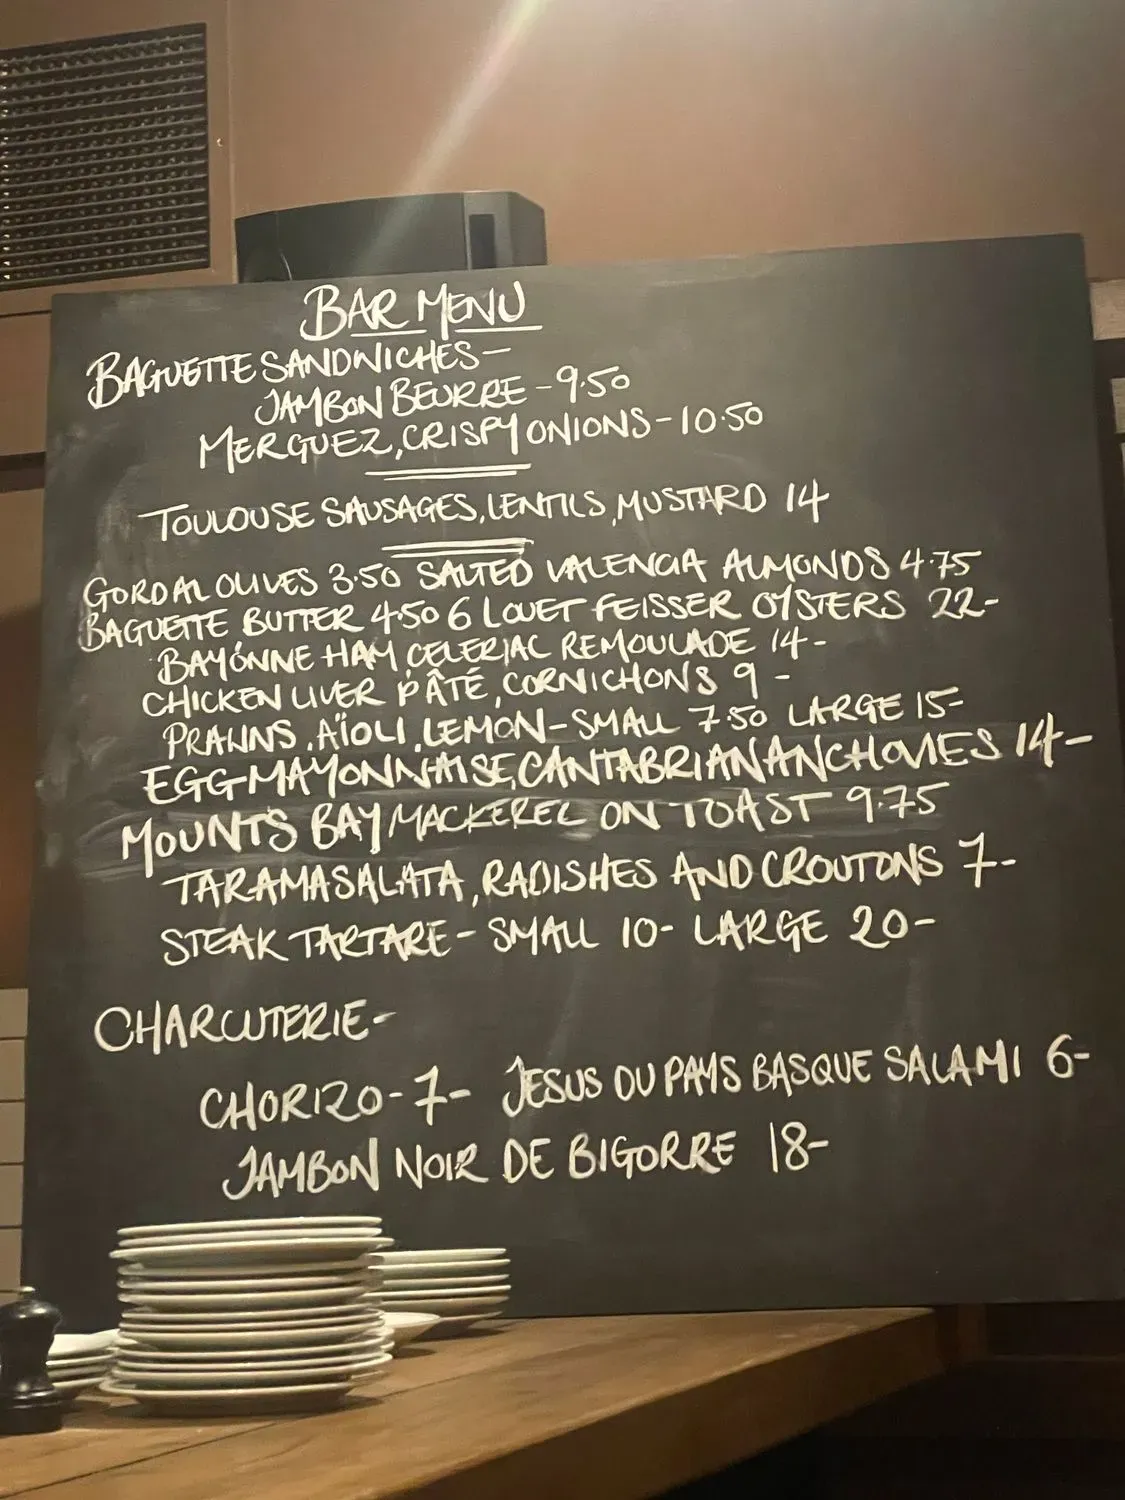 BAR MENU
BAGUETTE SANDWICHES-
JAMBON BEURRE - 9.50
MERGUEZ, CRISPY ONIONS - 10.50
TOULOUSE SAUSAGES, LENTILS, MUSTARD 14
GORDAL OLIVES 3.50 SALTED VALENCIA ALMONDS 4.75
BAGUETTE BUTTER 4.50 6 LOUET FEISSER OYSTERS 22-
BAYONNE HAM, CELERIAC REMOULADE 14-
CHICKEN LIVER PÂTÉ, CORNICHONS 9-
PRAWNS, AÏOLI, LEMON-SMALL 7.50 LARGE 15-
EGG MAYONNAISE, CANTABRIAN ANCHOVIES 14-
MOUNT'S BAY MACKEREL ON TOAST 9.75
TARAMASALATA, RADISHES AND CROUTONS 7-
STEAK TARTARE - SMALL 10- LARGE 20-
CHARCUTERIE-
CHORIZO-7- JESUS DU PAYS BASQUE SALAMI 6-
JAMBON NOIR DE BIGORRE 18-